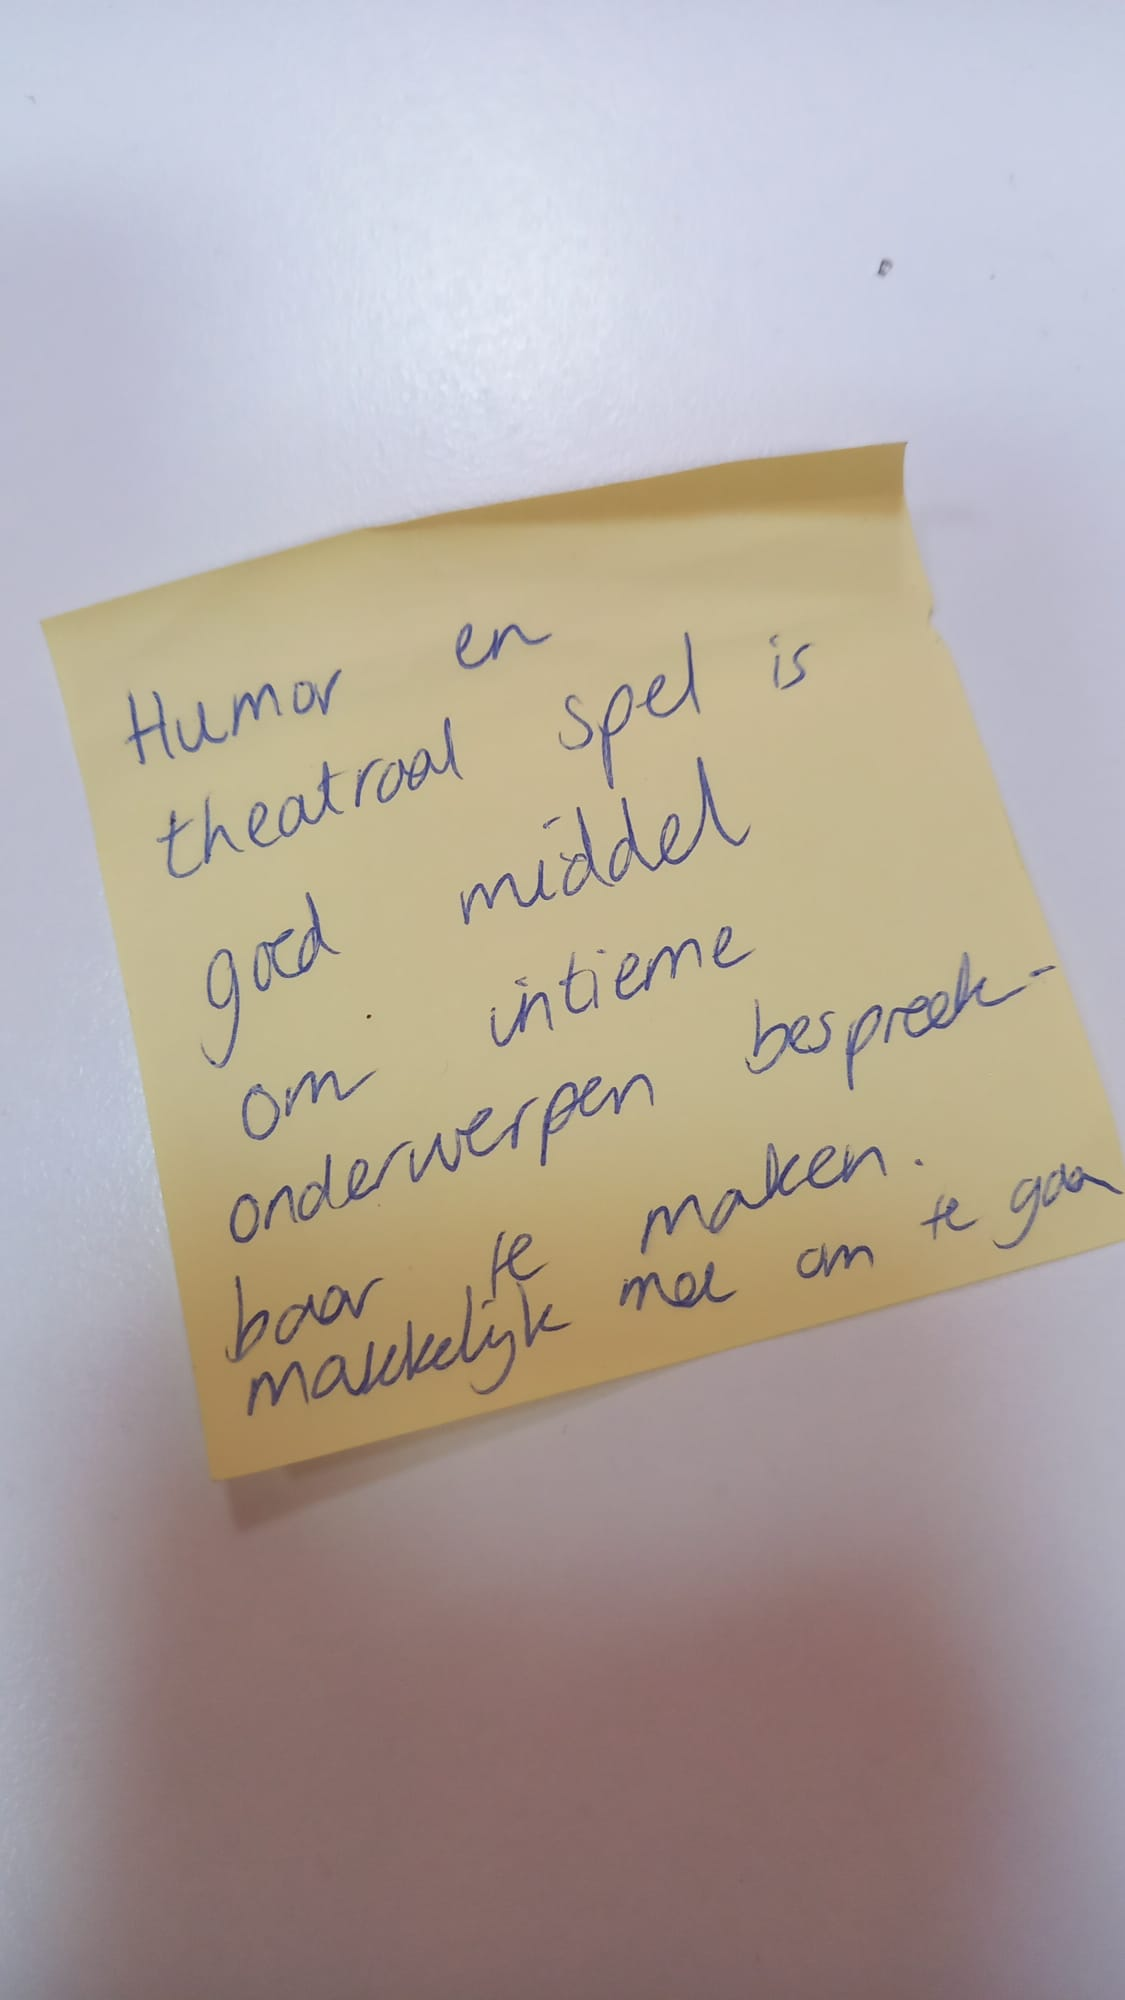 Humor en
theatraal spel is
goed middel
om intieme
onderwerpen bespreek-
baar te maken.
makkelijk mee om te gaan